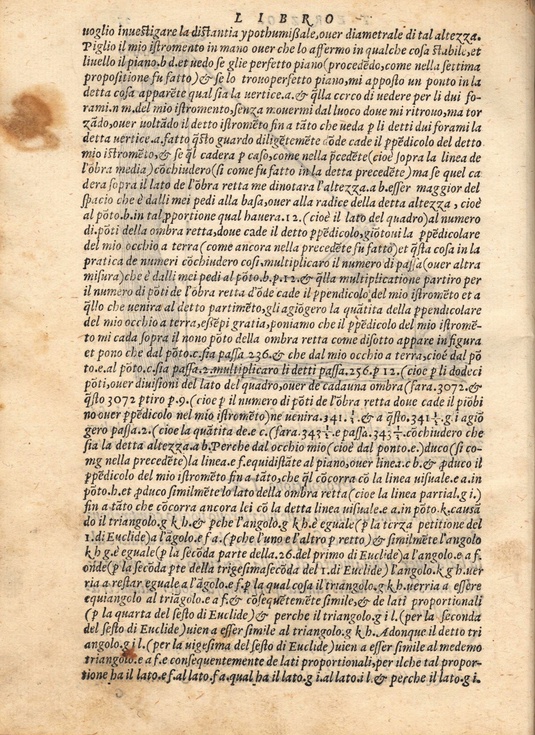 LIBRO
uoglio inuestigare la distantia ypothumißale, ouer diametrale di tal altezza.
Piglio il mio istromento in mano ouer che lo affermo in qualche cosa stabile, et
liuello il piano.b d.et uedo se glie perfetto piano (procedẽdo, come nella settima
propositione fu fatto) & se lo trouo perfetto piano, mi apposto un ponto in la
detta cosa apparẽte qual sia la uertice.a. & q̃lla cerco di uedere per li dui fo-
rami.n m.del mio istromento, senza mouermi dal luoco doue mi ritrouo, ma tor
zãdo, ouer uoltãdo il detto istromẽto fin a tãto che ueda p li detti dui forami la
detta uertice.a.fatto q̃sto guardo diligẽtemẽte dõde cade il ppẽdicolo del detto
mio istromẽto, & se q̃l cadera p caso, come nella p̃cedẽte (cioe sopra la linea de
l'õbra media) cõchiudero (si come fu fatto in la detta precedẽte) ma se quel ca
dera sopra il lato de l'õbra retta me dinotara l'altezza.a b.esser maggior del
spacio che è dalli mei pedi alla basa, ouer alla radice della detta altezza, cioè
al põto.b.in tal pportione qual hauera.12.(cioè il lato del quadro) al numero
di.põti della ombra retta, doue cade il detto ppẽdicolo, giõtoui la ppẽdicolare
del mio occhio a terra (come ancora nella precedẽte fu fatto) et q̃sta cosa in la
pratica de numeri cõchiudero cosi. multiplicaro il numero di passa (ouer altra
misura) che è dalli mei pedi al põto.b.p.12. & q̃lla multiplicatione partiro per
il numero di põti de l'obra retta d'õde cade il ppendicolo del mio istromẽto et a
q̃llo che uenira al detto partimẽto, gli agiõgero la quãtita della ppendicolare
del mio occhio a terro, essẽpi gratia, poniamo che il ppẽdicolo del mio istromẽ-
to mi cada sopra il nono põto della ombra retta come disotto appare in figura
et pono che dal põto.c.sia passa 236. & che dal mio occhio a terra, cioè dal põ
to.e.al põto.c.sia passa.2.multiplicaro li detti passa.256.p 12.(cioe p li dodeci
põti, ouer diuisioni del lato del quadro, ouer de cadauna ombra (fara.3072. &
q̃sto 3072 ptiro p.9.(cioe p il numero di põti de l'obra retta doue cade il piõbi
no ouer ppẽdicolo nel mio istromẽto) ne uenira.341.⅓. & a q̃sto.341⅓.gi agiõ
gero passa.2.(cioe la quãtita de.e c.(fara.343⅓.e passa.343⅓.cõchiudero che
sia la detta altezza.a b.Perche dal occhio mio (cioè dal ponto.e.) duco (si co-
mg nella precedẽte) la linea.e f.equidistãte al piano, ouer linea.c b. & pduco il
ppẽdicolo del mio istromẽto fin a tãto, che q̃l cõcorra cõ la linea uisuale.e a.in
põto.h.et pduco similmẽte lo lato della ombra retta (cioe la linea partial.g i.)
fin a tãto che cõcorra ancora lei cõ la detta linea uisuale.e a.in põto k, causã
do il triangolo.g k h. & pche l'angolo.g k h.è eguale (p la terza petitione del
1.di Euclide) a l'ãgolo.e f a.(pche l'uno e l'altro p retto) & similmẽte l'angolo
k h g.è eguale (p la secõda parte della.26.del primo di Euclide) a l'angolo.e a f.
onde (p la secõda pte della trigesimasecõda del 1.di Euclide) l'angolo.k g h.uer
ria a restar eguale a l'ãgolo.e f.p la qual cosa il triangolo.g k h.uerria a essere
equiangolo al triãgolo.e a f. & cõsequẽtemẽte simile, & de lati proportionali
(p la quarta del sesto di Euclide) & perche il triangolo.g i l.(per la seconda
del sesto di Euclide) uien a esser simile al triangolo.g k h. Adonque il detto tri
angolo.g i l.(per la uigesima del sesto di Euclide) uien a esser simile al medemo
triangolo.e a f.e consequentemente de lati proportionali, per ilche tal propor-
tione ha il lato.e f.al lato.f a.qual ha il lato.g i.al lato.i l. & perche il lato.g i.